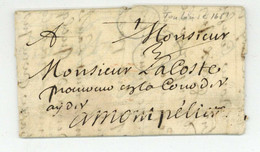 Toulouse
A Monsieur
Monsieur Lacoste
procureur en la Cour d
ayder
a monpelier